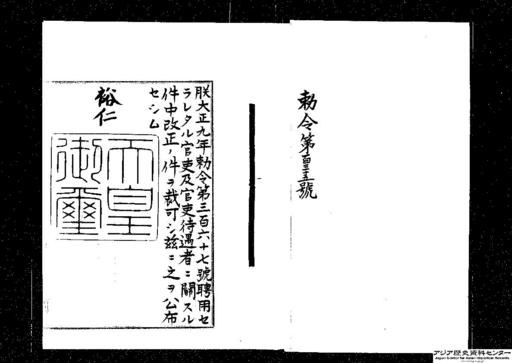 勅令第百三十五號
朕大正九年勅令第三百六十七號聘用セ
ラレタル官吏及官吏待遇者ニ關スル
件中改正ノ件ヲ裁可シ茲ニ之ヲ公布
セシム
裕仁
天皇
御璽
アジア歴史資料センター
Japan Center for Asian Historical Records